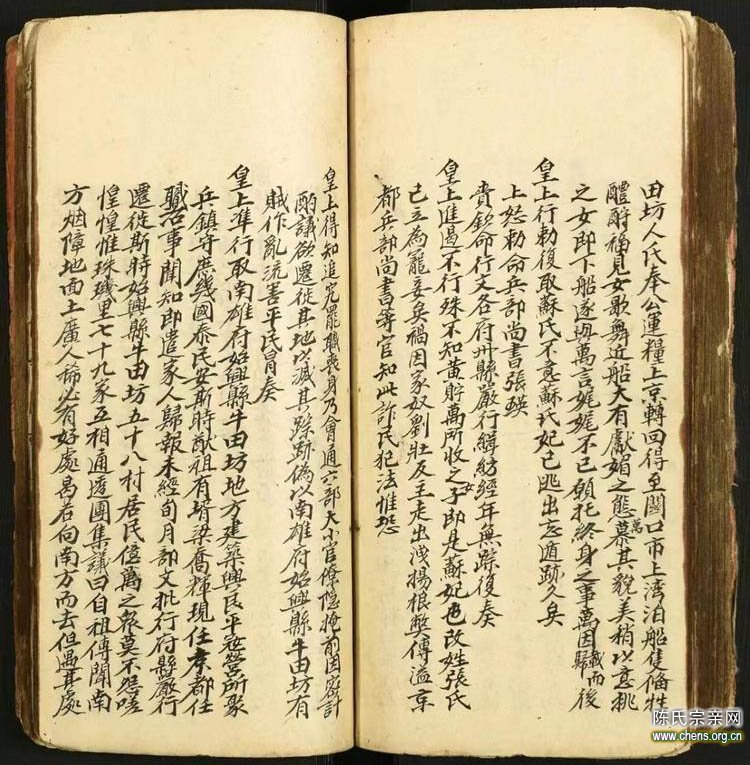 田坊人氏奉公運糧上京轉回得至關口市上湾泊船隻俻牲
醴酧福見女歌舞近船大有獻媚之態萬慕其貌美稍以意挑
之女即下船遂與萬言娓娓不已願托終身之事萬因載歸而後
皇上行勅復取蘇氏不意蘇氏妃已逃出忘遁跡久矣
上怒勅命兵部尚書張瑛
貴欽命行文各府州縣嚴行緝紡經年無踪復奏
皇上進過不行殊不知黄貯萬所收之女子即是蘇妃也改姓張氏
已立為寵妾矣禍因家奴劉壯反主走出洩揚根獘傳溢京
都兵部尚書等官知此詐民犯法惟恐
皇上得知追究罷職喪身乃會通六部大小官僚隱掩前因密計
酌議欲遷徙其地以滅其踪跡偽以南雄府始興縣牛田坊有
賊作亂流害平民冒奏
皇上準行取南雄府始興縣牛田坊地方建築興民平寇營所聚
兵鎮守庶幾國泰民安斯時猷祖有壻梁喬輝現任京都任
職治事聞知即遣家人歸報未經旬月部文批行府縣嚴行
遷徙斯時始興縣牛田坊五十八村居民億萬之衆莫不怨嗟
惶惶惟珠璣里七十九家互相通透團集議曰自祖傳聞南
方烟障地面土廣人稀必有好處曷若向南方而去但遇其處
陈氏宗亲网
www.chens.org.cn